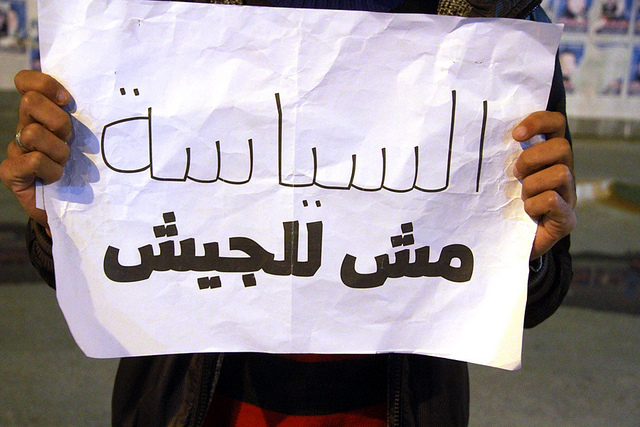 السياسة
مش للجيش